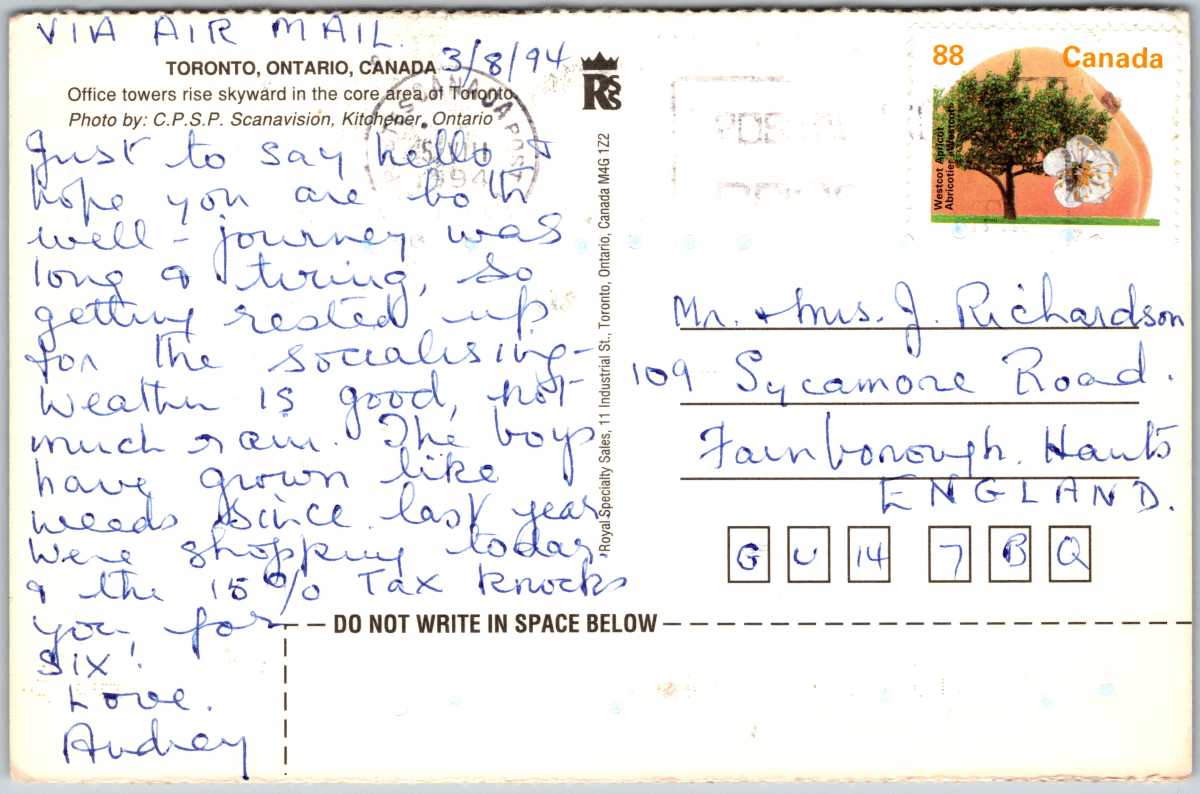 VIA AIR MAIL.
3/8/94
TORONTO, ONTARIO, CANADA
Office towers rise skyward in the core area of Toronto.
Photo by: C.P.S.P. Scanavision, Kitchener, Ontario
Just to say hello &
hope you are both
well - journey was
long & tiring, so
getting rested up
for the socialising -
Weather is good, not
much rain. The boys
have grown like
weeds since last year
Were shopping today,
& the 15% Tax knocks
you for
six!
Love.
Audrey
DO NOT WRITE IN SPACE BELOW
Royal Specialty Sales, 11 Industrial St., Toronto, Ontario, Canada M4G 1Z2
RSS
CANADA POST
1994
88 Canada
Westcot Apricot
Abricotier «Westcot»
Mr. & Mrs. J. Richardson
109 Sycamore Road.
Farnborough. Hants
ENGLAND.
GU14 7BQ